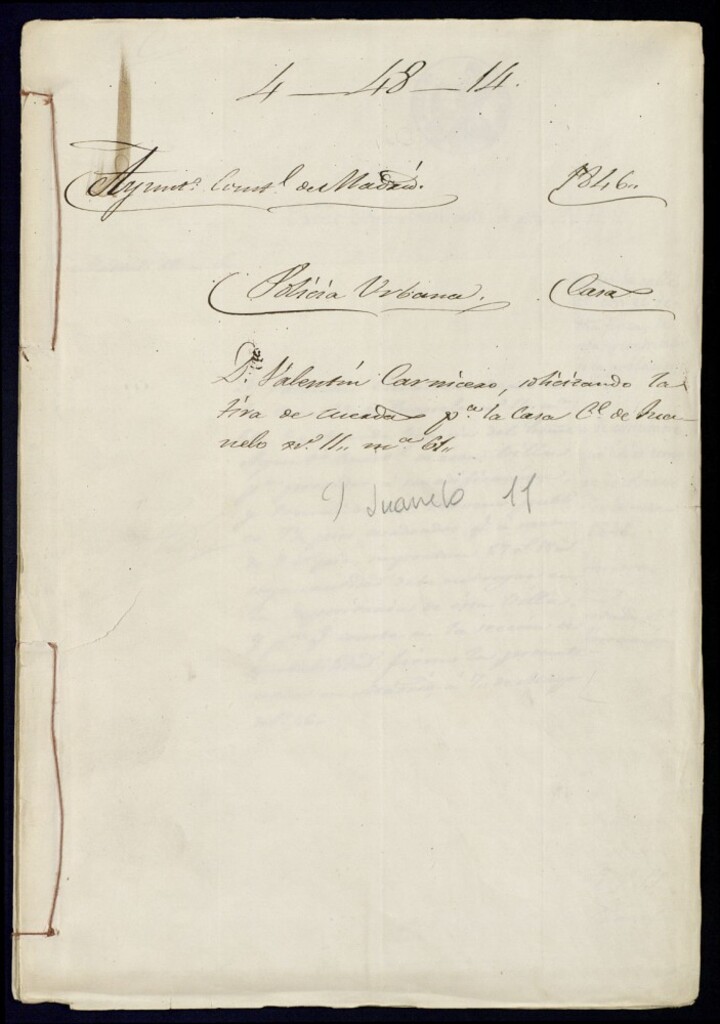 4 — 48 — 14.
Ayunt.º Const.l de Madrid.
1846„
Policia Urbana.
Casa
D.n Valentin Carnicero, solicitando la
tira de cuerdas p.a la Casa C.l de Jua-
nelo n.º 11„ m.a 61„
Juanelo 11